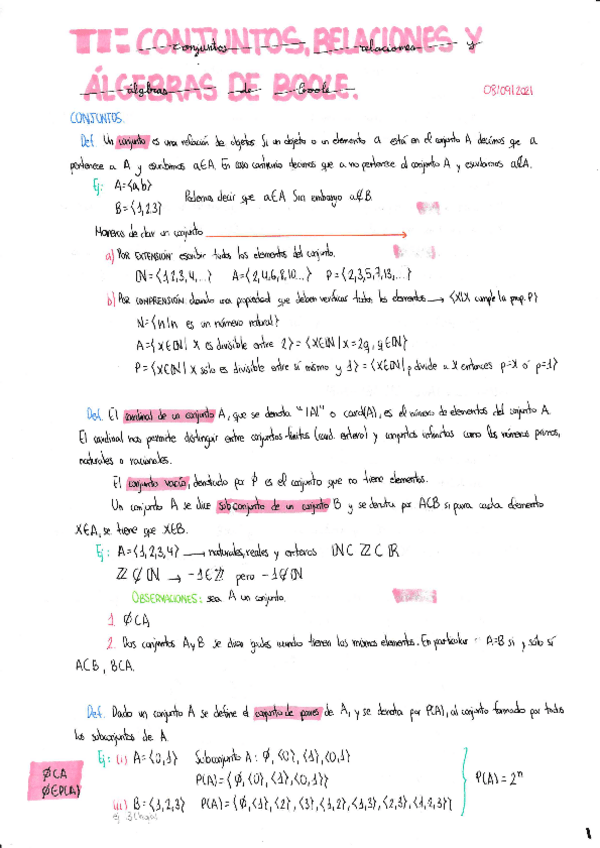 T1: CONJUNTOS, RELACIONES Y
conjuntos relaciones y
ÁLGEBRAS DE BOOLE.
álgebras de boole
08/09/2021
CONJUNTOS.
Def. Un conjunto es una relación de objetos. Si un objeto o un elemento a está en el conjunto A decimos que a
pertenece a A y escribimos a∈A. En caso contrario decimos que a no pertenece al conjunto A y escribimos a∉A.
Ej: A={a,b}
B={1,2,3} Podemos decir que a∈A. Sin embargo a∉B.
Maneras de dar un conjunto
a) POR EXTENSIÓN escribir todos los elementos del conjunto.
ℕ={1,2,3,4,...} A={2,4,6,8,10...} P={2,3,5,7,13,...}
b) POR COMPRENSIÓN dando una propiedad que deben verificar todos los elementos → {x|x cumple la prop. P}
N={n|n es un número natural}
A={x∈ℕ| x es divisible entre 2} = {x∈ℕ| x=2q, q∈ℕ}
P={x∈ℕ| x sólo es divisible entre sí mismo y 1} = {x∈ℕ| p divide a x entonces p=x ó p=1}
Def. El cardinal de un conjunto A, que se denota "|A|" o card(A), es el número de elementos del conjunto A.
El cardinal nos permite distinguir entre conjuntos finitos (card. entero) y conjuntos infinitos como los números primos,
naturales o racionales.
El conjunto vacío, denotado por ∅ es el conjunto que no tiene elementos.
Un conjunto A se dice subconjunto de un conjunto B y se denota por A⊂B si para cada elemento
x∈A, se tiene que x∈B.
Ej: A={1,2,3,4} → naturales, reales y enteros ℕ⊂ℤ⊂ℝ
ℤ⊄ℕ → -1∈ℤ pero -1∉ℕ
OBSERVACIONES: sea A un conjunto.
1. ∅⊂A
2. Dos conjuntos A y B se dicen iguales cuando tienen los mismos elementos. En particular A=B si y sólo si
A⊂B, B⊂A.
Def. Dado un conjunto A se define el conjunto de partes de A, y se denota por P(A), al conjunto formado por todos
los subconjuntos de A.
Ej: (i) A={0,1} Subconjunto A: ∅, {0}, {1}, {0,1}
P(A)={∅, {0}, {1}, {0,1}}
P(A)=2ⁿ
∅⊂A
∅∈P(A)
(ii) B={1,2,3} P(A)={∅,{1},{2},{3},{1,2},{1,3},{2,3},{1,2,3}}
1